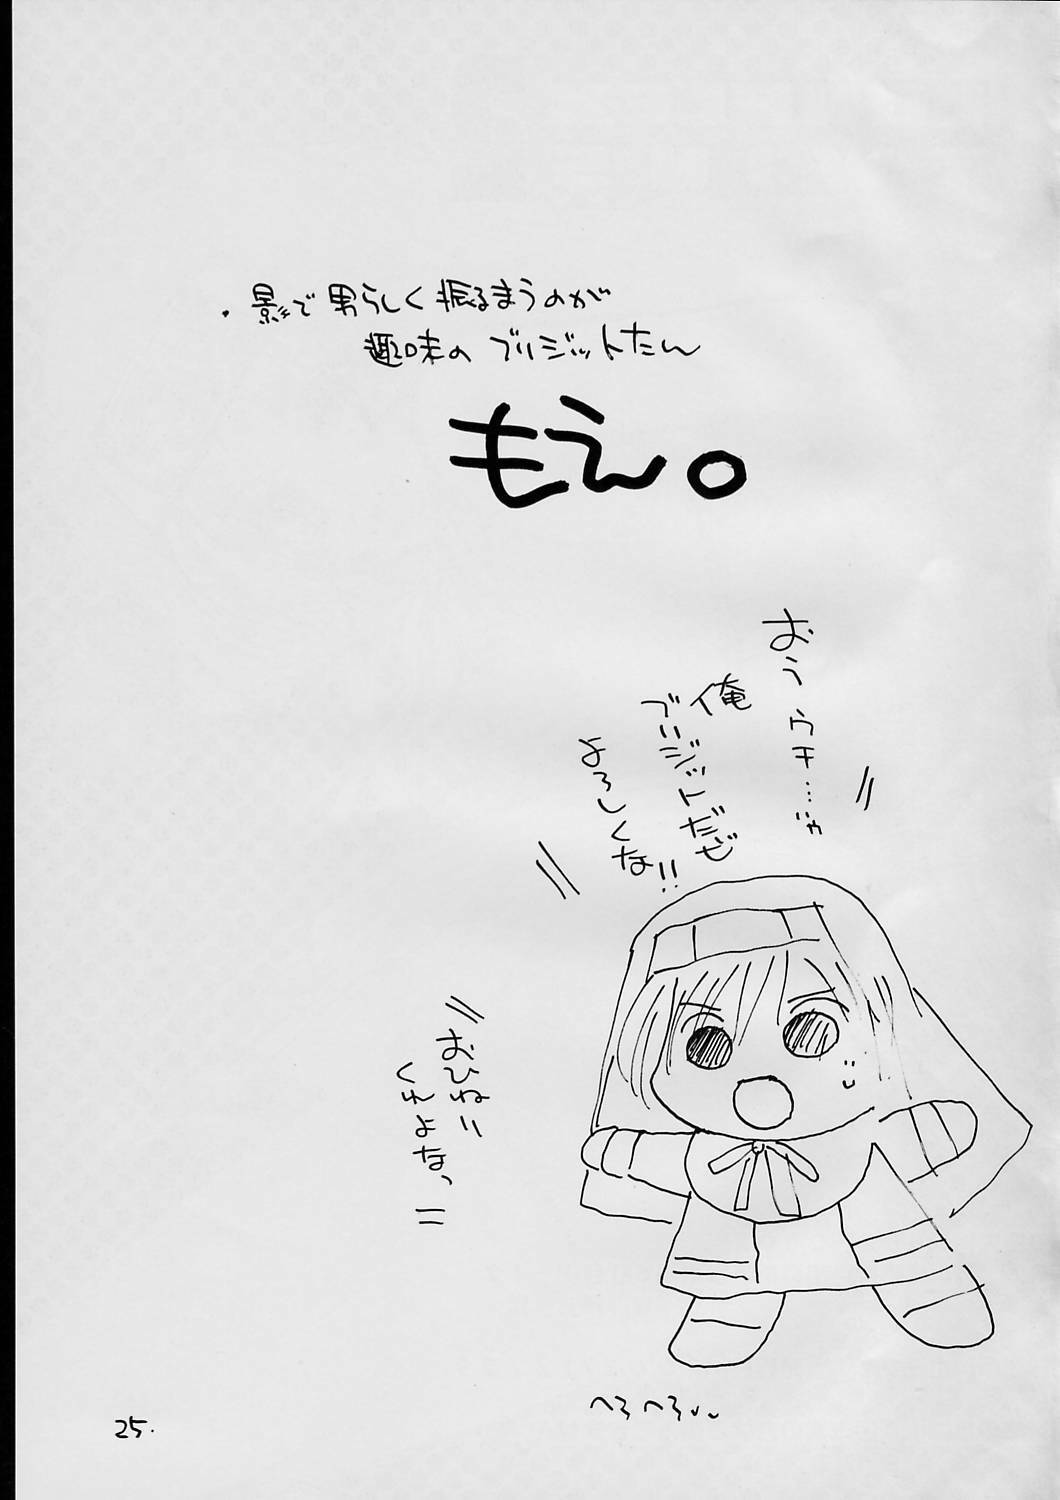 ・影で男らしく振るまうのが
趣味のブリジットたん
もえ。
おうウチ…じゃ
俺
イ
ブリジットだぜ
よろしくな!!
おひねり
くれよな、
へろへろ
25.